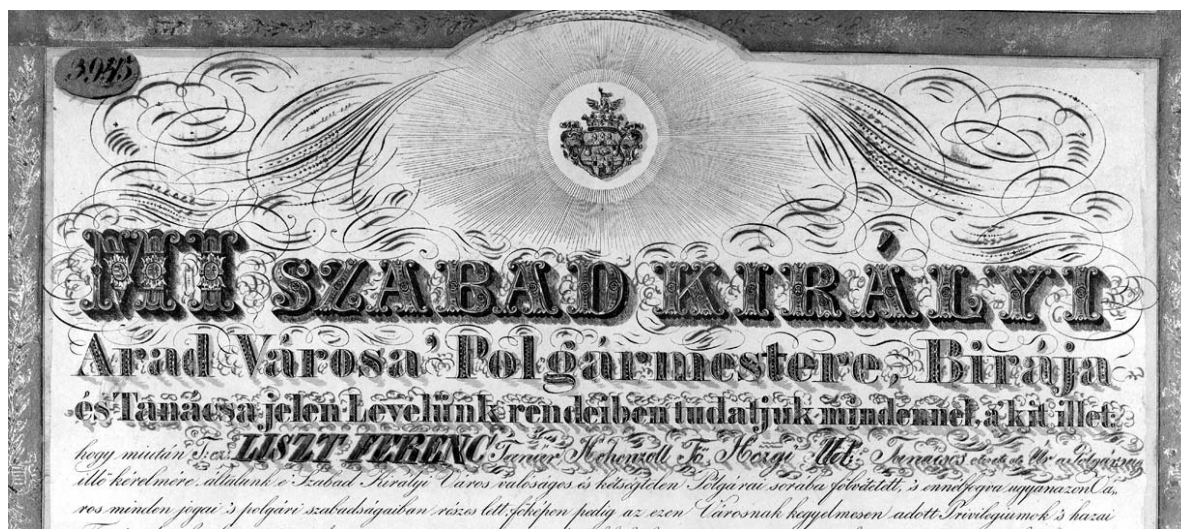 3945
MI SZABAD KIRÁLYI
Arad Városa' Polgármestere, Birája
és Tanácsa jelen Levelünk rendeiben tudatjuk mindennel, a kit illet
hogy miután T: cz: LISZT FERENC
illő kérelmére általunk e Szabad Királyi Város valóságos és kétségtelen Polgárai sorába fölvétetett, s ennélfogva ugyanazon Vá-
ros minden jogai 's polgári szabadságaiban részes lett, főképen pedig az ezen Városnak kegyelmesen adott Privilegiumok 's hazai